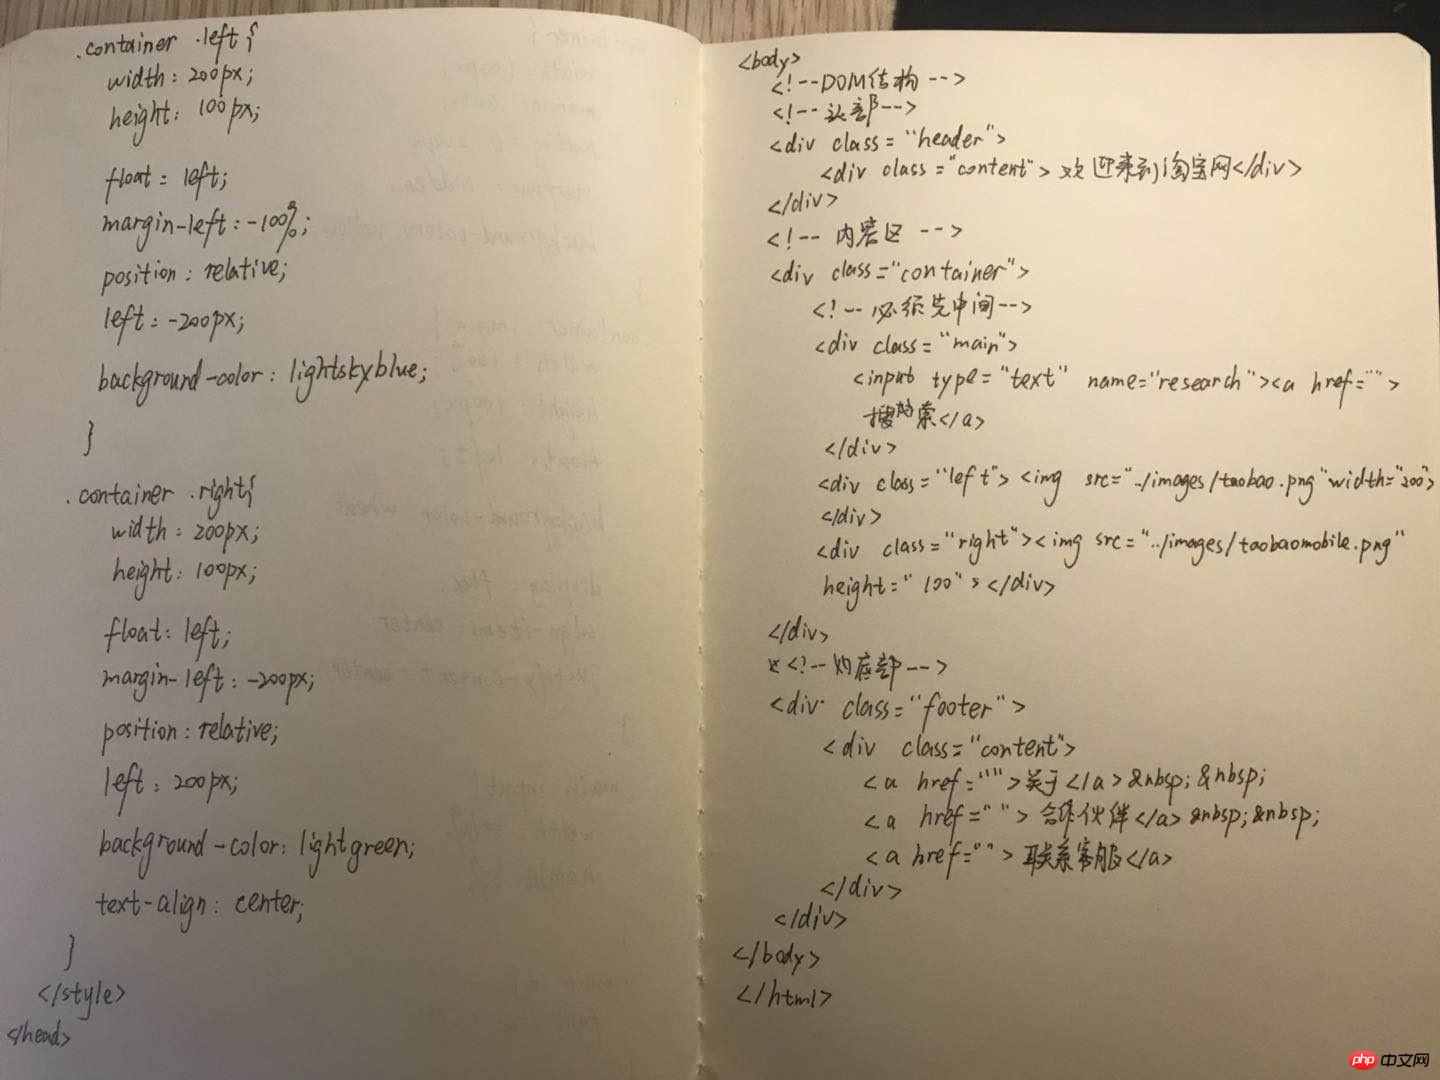 .container .left{
width: 200px;
height: 100px;
float: left;
margin-left: -100%;
position: relative;
left: -200px;
background-color: lightskyblue;
}
.container .right{
width: 200px;
height: 100px;
float: left;
margin-left: -200px;
position: relative;
left: 200px;
background-color: lightgreen;
text-align: center;
}
</style>
</head>
<body>
<!--DOM结构-->
<!--头部-->
<div class="header">
<div class="content">欢迎来到淘宝网</div>
</div>
<!-- 内容区 -->
<div class="container">
<!--必须先中间-->
<div class="main">
<input type="text" name="research"><a href="">
搜索</a>
</div>
<div class="left"><img src="../images/taobao.png" width="200">
</div>
<div class="right"><img src="../images/taobaomobile.png"
height="100"></div>
</div>
<!--底部-->
<div class="footer">
<div class="content">
<a href="">关于</a>&nbsp;&nbsp;
<a href="">合作伙伴</a>&nbsp;&nbsp;
<a href="">联系客服</a>
</div>
</div>
</body>
</html>
php 中文网